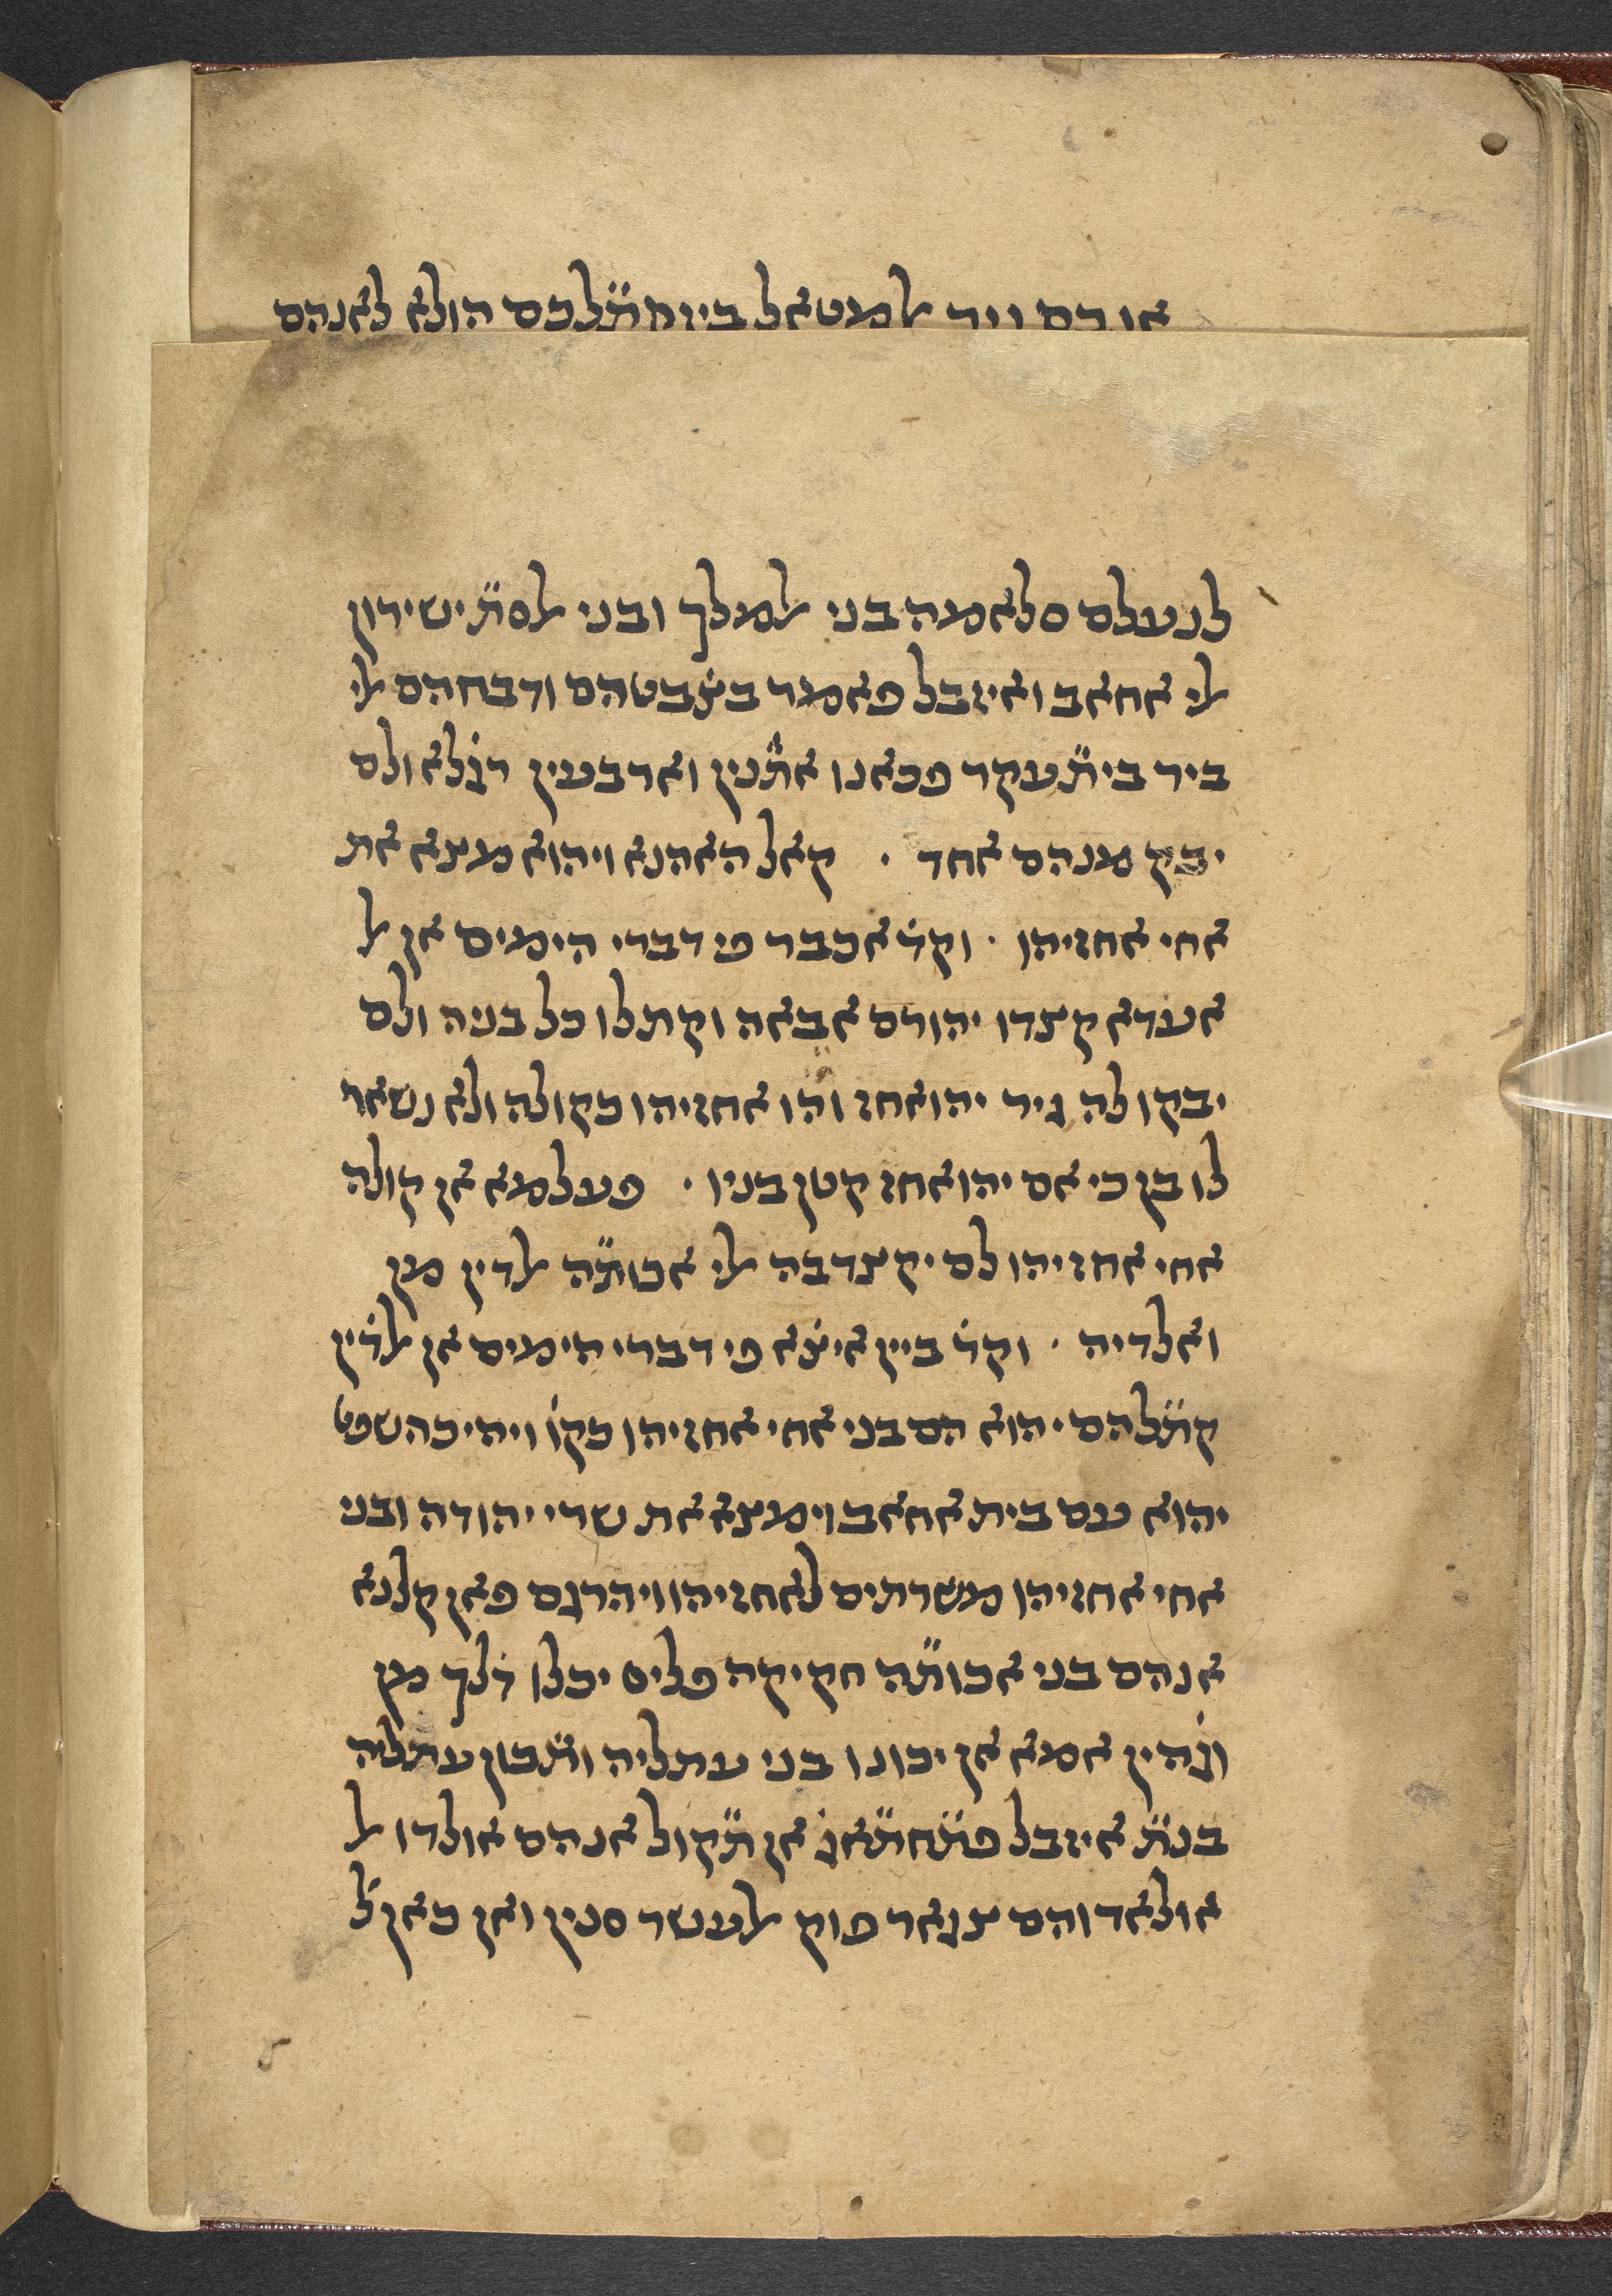 אלמטאל הולא לאנהם
לנעלם סלאמה בני ﭏמלך ובני ﭏסת̈ ישירון
ﭏי אחאב ואיזבל פאמר בצׄבטהם ודבחהם ﭏי
ביר בית̈ עקד פכאנו את̈נין וארבעין רגׄלא ולם
יבק מנהם אחד · קאל האהנא ויהוא מצא את
אחי אחזיהו · וקדׄ אכבר פי דברי הימים אן ﭏ
אעדא קצדו יהורם אבאה וקתלו כל בניה ולם
יבקו לה גיר יהואחז והו אחזיהו כקולה ולא נשאר
לו בן כי אם יהואחז קטן בניו · פעלמא אן קולה
אחי אחזיהו לם יקצד בה ﭏי אכות̈ה ﭏדין מן
ואלדיה · וקדׄ ביין איצׄא פי דברי הימים אן ﭏדׄין
קת̈להם יהוא הם בני אחי אחזיהו כקוׄ ויהי כהשפט
יהוא עם בית אחאב וימצא את שרי יהודה ובני
אחי אחזיהו משרתים לאחזיהו ויהרגם פאן קלנא
אנהם בני אכות̈ה חקיקה פליס יכלו דׄלך מן
וגׄהין אמא אן יכונו בני עתליה ות̈כון עתליה
בנת̈ איזבל פת̈חת̈אגׄ אן ת̈קול אנהם אולדו ﭏ
אולאד והם צגאר פוק ﭏעשר סנין ואן כאן ל